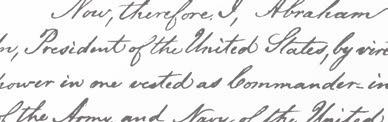 Now, therefore, I, Abraham
n, President of the United States, by virt
power in me vested as Commander-in
of the Army and Navy of the United